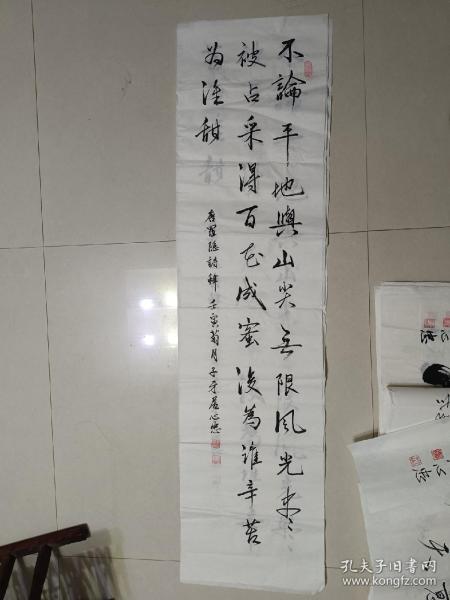 不論平地與山尖无限風光尽
被占采得百花成蜜後為誰辛苦
为谁甜
唐羅隱詩蜂 壬寅菊月
孔夫子旧书网
www.kongfz.com